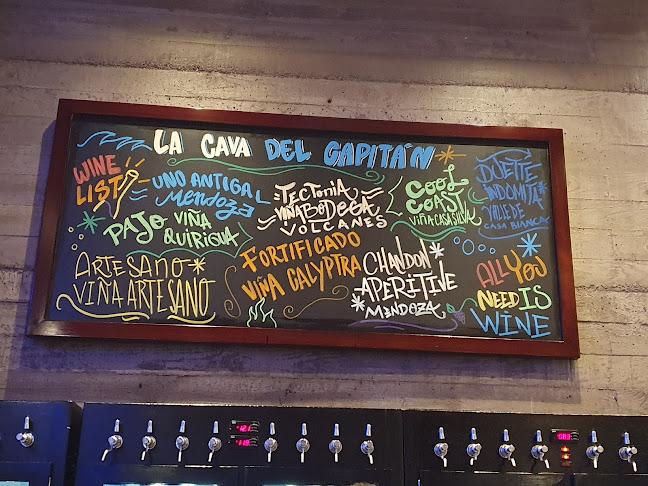 LA CAVA DEL CAPITÁN
WINE
LIST
UNO ANTIGAL
Mendoza
TECTONIA
VIÑA BODEGA
VOLCANES
COOL
COAST
VIÑA CASA SILVA
DUETTE
INDOMITA
VALLE DE
CASA BLANCA
PAJO VIÑA
QUIRIGUA
ARTESANO
VIÑA ARTESANO
FORTIFICADO
VIÑA CALYPTRA
CHANDON
APERITIVE
MENDOZA
ALL YOU
NEED IS
WINE